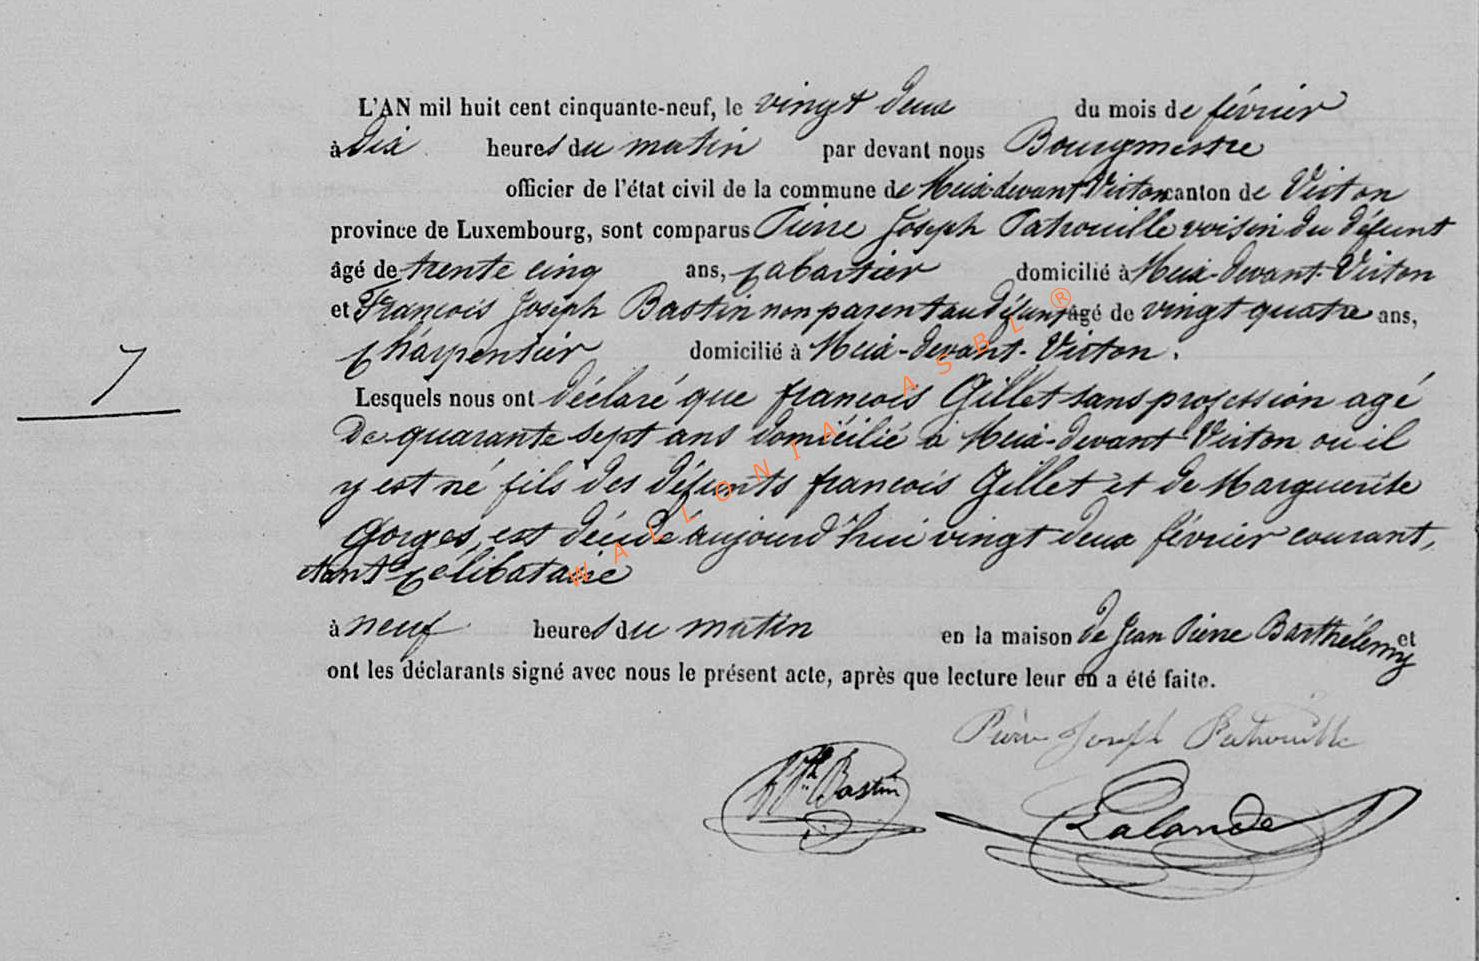 L'AN mil huit cent cinquante-neuf, le vingt deux du mois de février
à dix heures du matin par devant nous Bourgmestre
officier de l'état civil de la commune de Meix-devant Virton canton de Virton
province de Luxembourg, sont comparus Pierre Joseph Patrouille voisin du défunt
âgé de trente cinq ans, Cabartier domicilié à Meix-devant-Virton
et François Joseph Bastin non parent au défunt âgé de vingt quatre ans,
Charpentier domicilié à Meix-devant-Virton.
Lesquels nous ont déclaré que françois Gillet sans profession agé
De quarante sept ans domicilié à Meix-devant Virton ou il
y est né fils des défunts françois Gillet et de Marguerite
Gorges, est décédé aujourd'hui vingt deux février courant,
étant Célibataire
7
à neuf heures du matin en la maison de Jean Pierre Barthélemy et
ont les déclarants signé avec nous le présent acte, après que lecture leur en a été faite.
Pierre Joseph Patrouille
Bastin
Lalande
WALLONIA ASBL ®